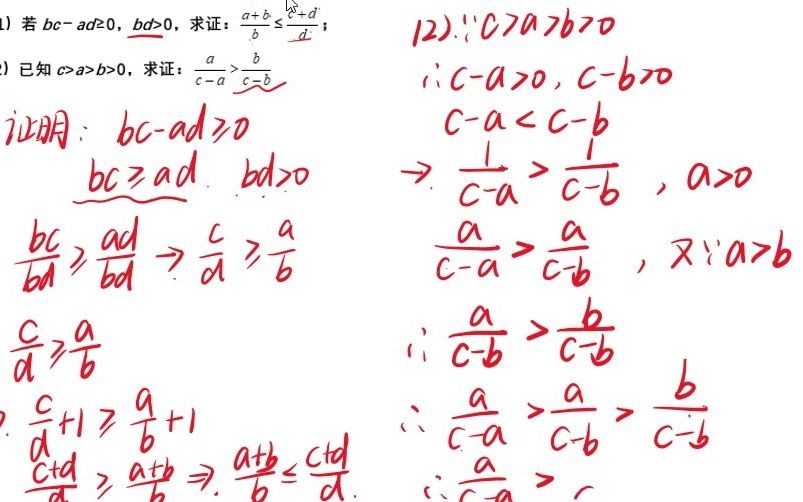 1) 若 bc－ad≥0，bd>0，求证：(a+b)/b ≤ (c+d)/d；
2) 已知 c>a>b>0，求证：a/(c－a) > b/(c－b)
证明：bc-ad≥0
bc≥ad. bd>0
bc/bd ≥ ad/bd → c/d ≥ a/b
c/d ≥ a/b
c/d+1 ≥ a/b+1
(c+d)/d ≥ (a+b)/b ⇒ (a+b)/b ≤ (c+d)/d.
(2). ∵c>a>b>0
∴c-a>0, c-b>0
c-a<c-b
→ 1/(c-a) > 1/(c-b) , a>0
a/(c-a) > a/(c-b) , 又∵a>b
∴ a/(c-b) > b/(c-b)
∴ a/(c-a) > a/(c-b) > b/(c-b)
∴ a/(c-a) >